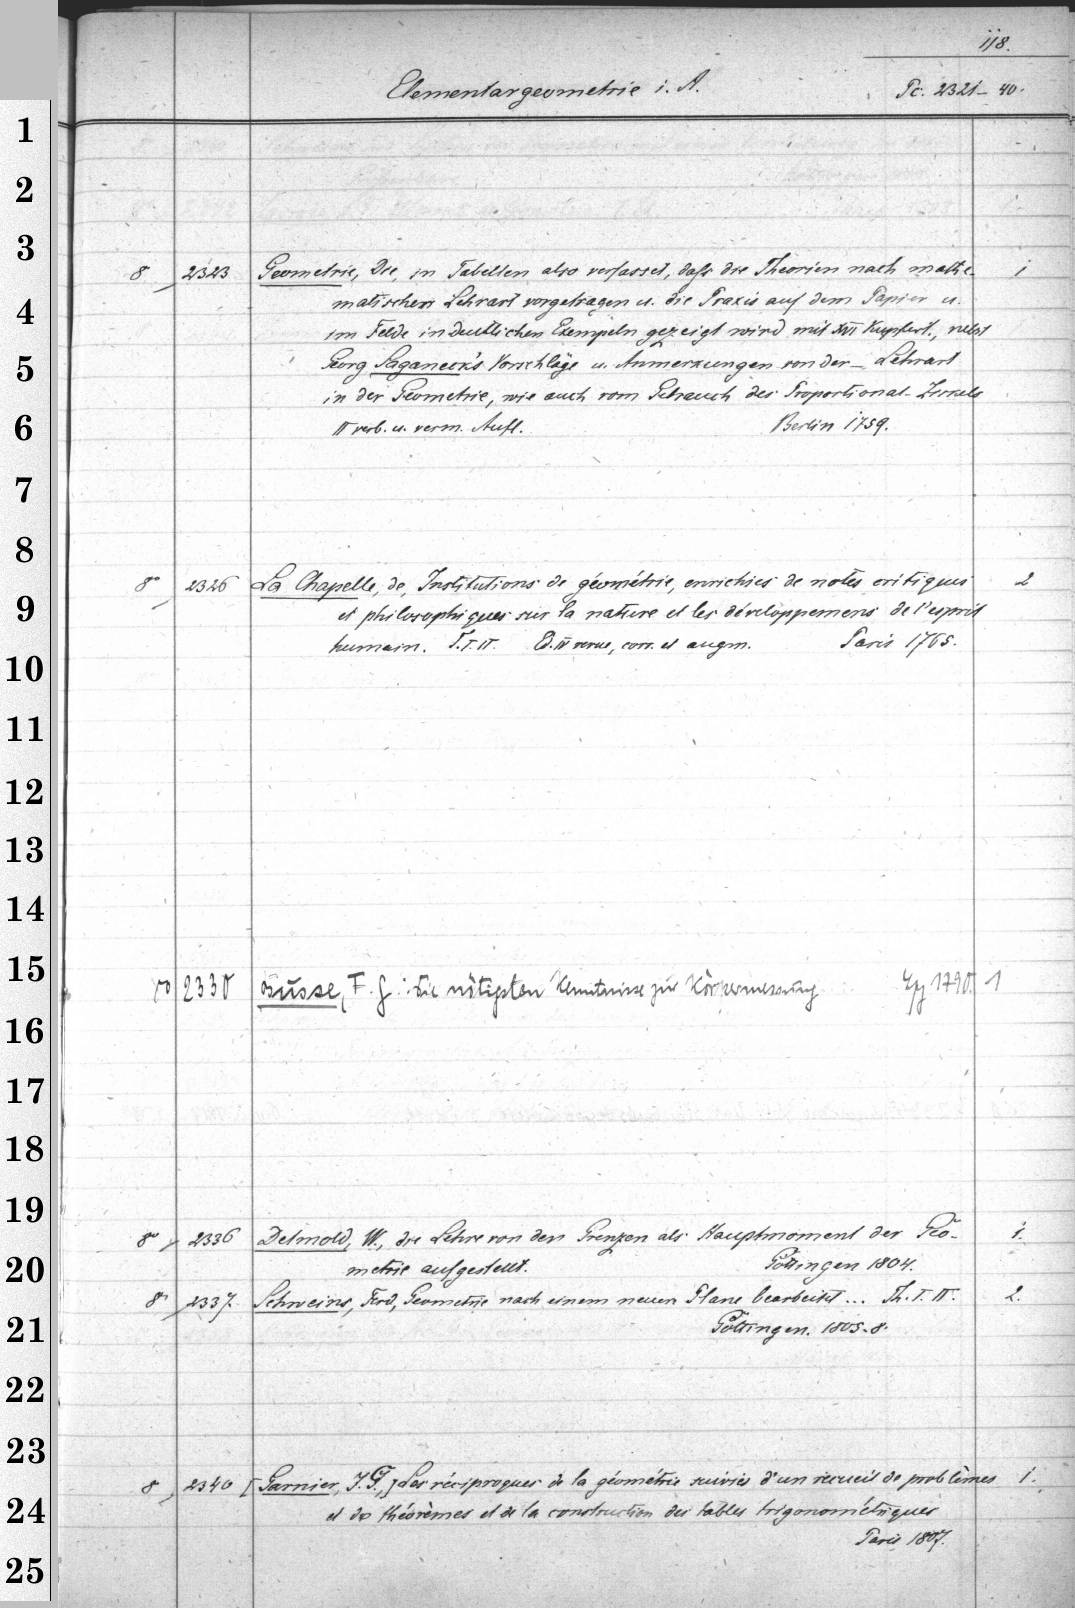 118.
Elementargeometrie i. A. Pc. 2321–40.
1
2
3
8 2323 Geometrie, Die, in Tabellen also verfasset, dass die Theorien nach mathe- 1
4
matischer Lehrart vorgetragen u. die Praxis auf dem Papier u.
im Felde in deutlichen Exempeln gezeigt wird mit XVI Kupfert., nebst
5
Georg Vorschläge u. Anmerkungen von der Lehrart
in der Geometrie, wie auch vom Gebrauch des Proportional-Zirkels
6
II verb. u. verm. Aufl. Berlin 1759.
7
8
8° 2326 La Chapelle, de, Institutions de géométrie, enrichies de notes critiques 2
9
et philosophiques sur la nature et les développemens de l'esprit
humain. T. I. II. Ed. IV revue, corr. et augm. Paris 1765.
10
11
12
13
14
15
8° 2330 Busse, F. G.: Die nötigsten Kenntnisse zur Körpermessung Lpz 1790. 1
16
17
18
19
8° 2336 Detmold, W., die Lehre von den Grenzen als Hauptmoment der Geo- 1.
20
metrie aufgestellt. Göttingen 1804.
8° 2337. Schweins, Ferd, Geometrie nach einem neuen Plane bearbeitet ... Th. I. II. 2.
21
Göttingen. 1805-8.
22
23
8 2340 [Garnier, J. G.,] Les réciproques de la géométrie suivies d'un recueil de problèmes 1.
24
et de théorèmes et de la construction des tables trigonométriques
Paris 1807.
25